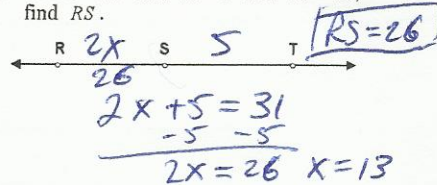 find RS.
2x 5 RS=26
R S T
26
2x +5 = 31
-5 -5
2x = 26 x=13